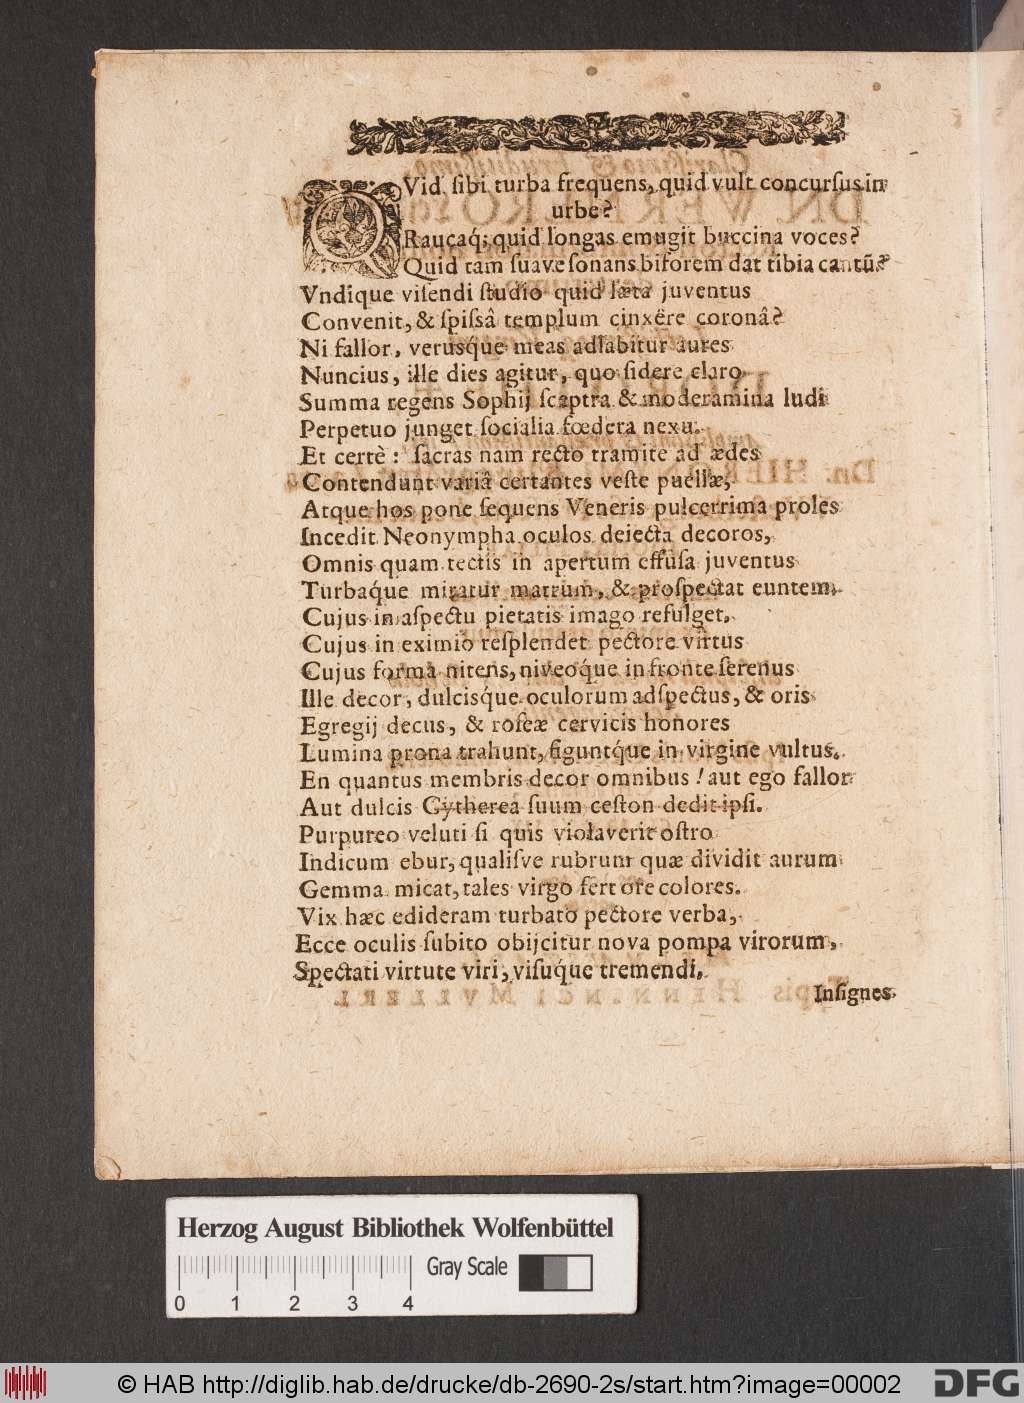 QVid sibi turba frequens, quid vult concursus in
urbe?
Raucaq; quid longas emugit buccina voces?
Quid tam suave sonans biforem dat tibia cantũ?
Vndique visendi studio quid læta juventus
Convenit, & spissâ templum cinxêre coronâ?
Ni fallor, verusq́ue meas adlabitur aures
Nuncius, ille dies agitur, quo sidere claro
Summa regens Sophij sceptra & moderamina ludi
Perpetuo junget socialia fœdera nexu.
Et certè: sacras nam recto tramite ad ædes
Contendunt variâ certantes veste puellæ,
Atque hos pone sequens Veneris pulcerrima proles
Incedit Neonympha oculos deiecta decoros,
Omnis quam tectis in apertum effusa juventus
Turbaq́ue miratur matrum, & prospectat euntem.
Cujus in aspectu pietatis imago refulget,
Cujus in eximio resplendet pectore virtus
Cujus forma nitens, niveoq́ue in fronte serenus
Ille decor, dulcisq́ue oculorum adspectus, & oris
Egregij decus, & roseæ cervicis honores
Lumina prona trahunt, figuntq́ue in virgine vultus.
En quantus membris decor omnibus! aut ego fallor
Aut dulcis Cytherea suum ceston dedit ipsi.
Purpureo veluti si quis violaverit ostro
Indicum ebur, qualisve rubrum quæ dividit aurum
Gemma micat, tales virgo fert ore colores.
Vix hæc edideram turbato pectore verba,
Ecce oculis subito obijcitur nova pompa virorum,
Spectati virtute viri, visuque tremendi,
Insignes
Herzog August Bibliothek Wolfenbüttel
Gray Scale
0 1 2 3 4
© HAB http://diglib.hab.de/drucke/db-2690-2s/start.htm?image=00002
DFG